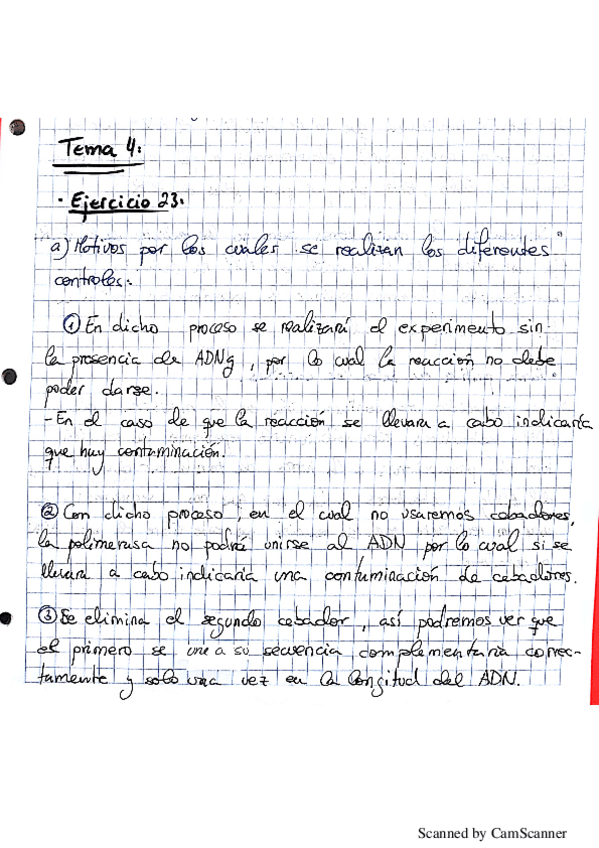 Tema 4:
· Ejercicio 23.
a) Motivos por los cuales se realizan los diferentes
controles.
① En dicho proceso se realizará el experimento sin
la presencia de ADNg, por lo cual la reacción no debe
poder darse.
- En el caso de que la reacción se llevara a cabo indicaría
que hay contaminación.
② Con dicho proceso, en el cual no usaremos cebadores,
la polimerasa no podrá unirse al ADN por lo cual si se
llevara a cabo indicaría una contaminación de cebadores.
③ Se elimina el segundo cebador, así podremos ver que
el primero se une a su secuencia complementaria correc-
tamente y solo una vez en la longitud del ADN.
Scanned by CamScanner